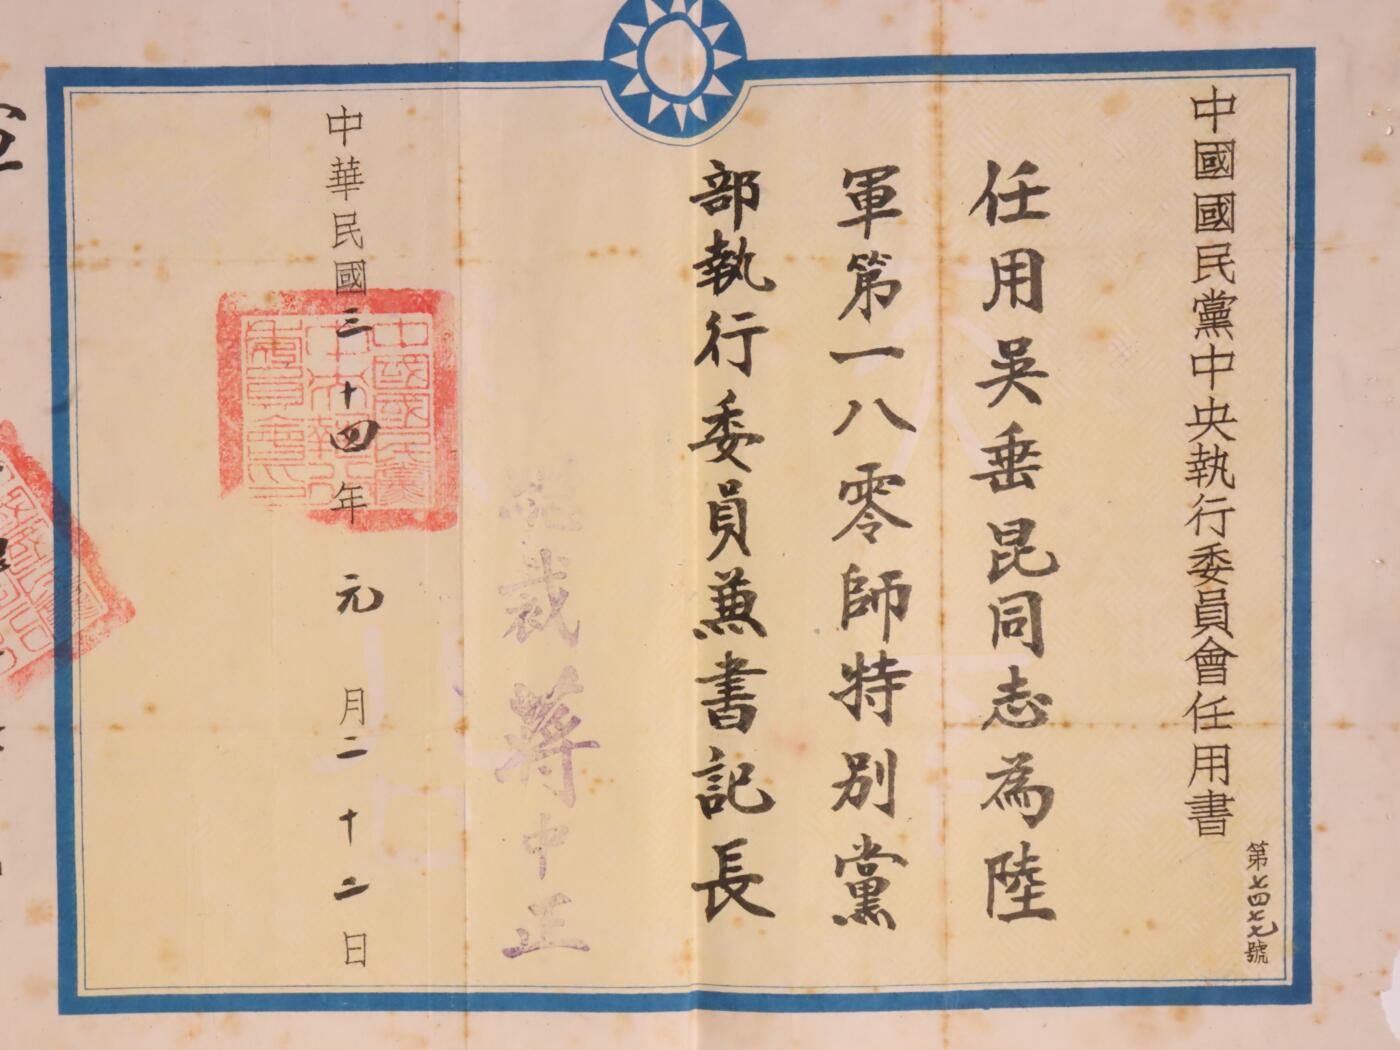 中國國民黨中央執行委員會任用書
第七四七七號
任用吳垂昆同志為陸
軍第一八零師特別黨
部執行委員兼書記長
總裁 蔣中正
中華民國三十四年元月二十二日
中國國民黨
中央執行
委員會印